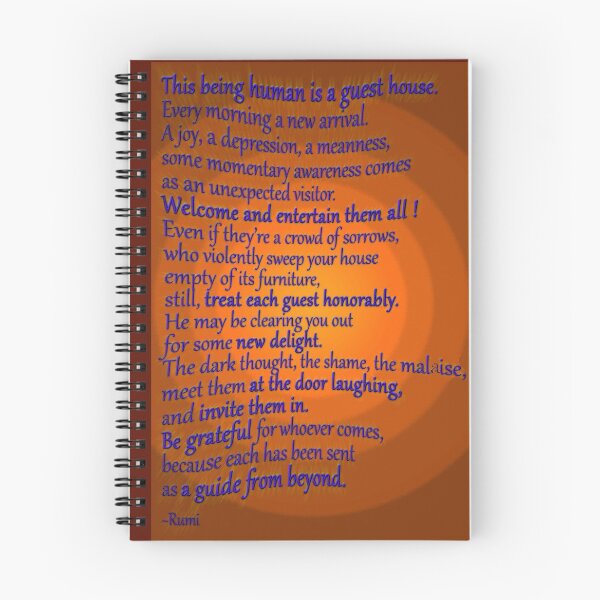 This being human is a guest house.
Every morning a new arrival.
A joy, a depression, a meanness,
some momentary awareness comes
as an unexpected visitor.
Welcome and entertain them all !
Even if they're a crowd of sorrows,
who violently sweep your house
empty of its furniture,
still, treat each guest honorably.
He may be clearing you out
for some new delight.
The dark thought, the shame, the malaise,
meet them at the door laughing,
and invite them in.
Be grateful for whoever comes,
because each has been sent
as a guide from beyond.
~Rumi